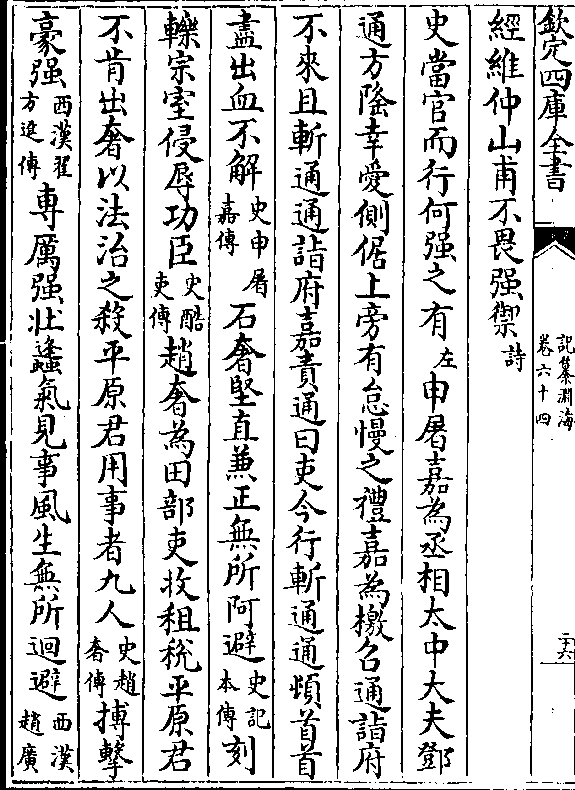 欽定四庫全書
記纂淵海
卷六十四
二十六
經維仲山甫不畏强禦詩
史當官而行何强之有左申屠嘉為丞相太中大夫鄧
通方隆幸愛側倨上旁有怠慢之禮嘉為檄召通詣府
不來且斬通通詣府嘉責通曰吏今行斬通通頓首首
盡出血不解史申屠嘉傳石奢堅直兼正無所阿避史記本傳刻
轢宗室侵辱功臣史酷吏傳趙奢為田部吏收租稅平原君
不肯出奢以法治之殺平原君用事者九人史趙奢傳搏擊
豪强西漢翟方進傳專厲强壯蠭氣見事風生無所迴避西漢趙廣